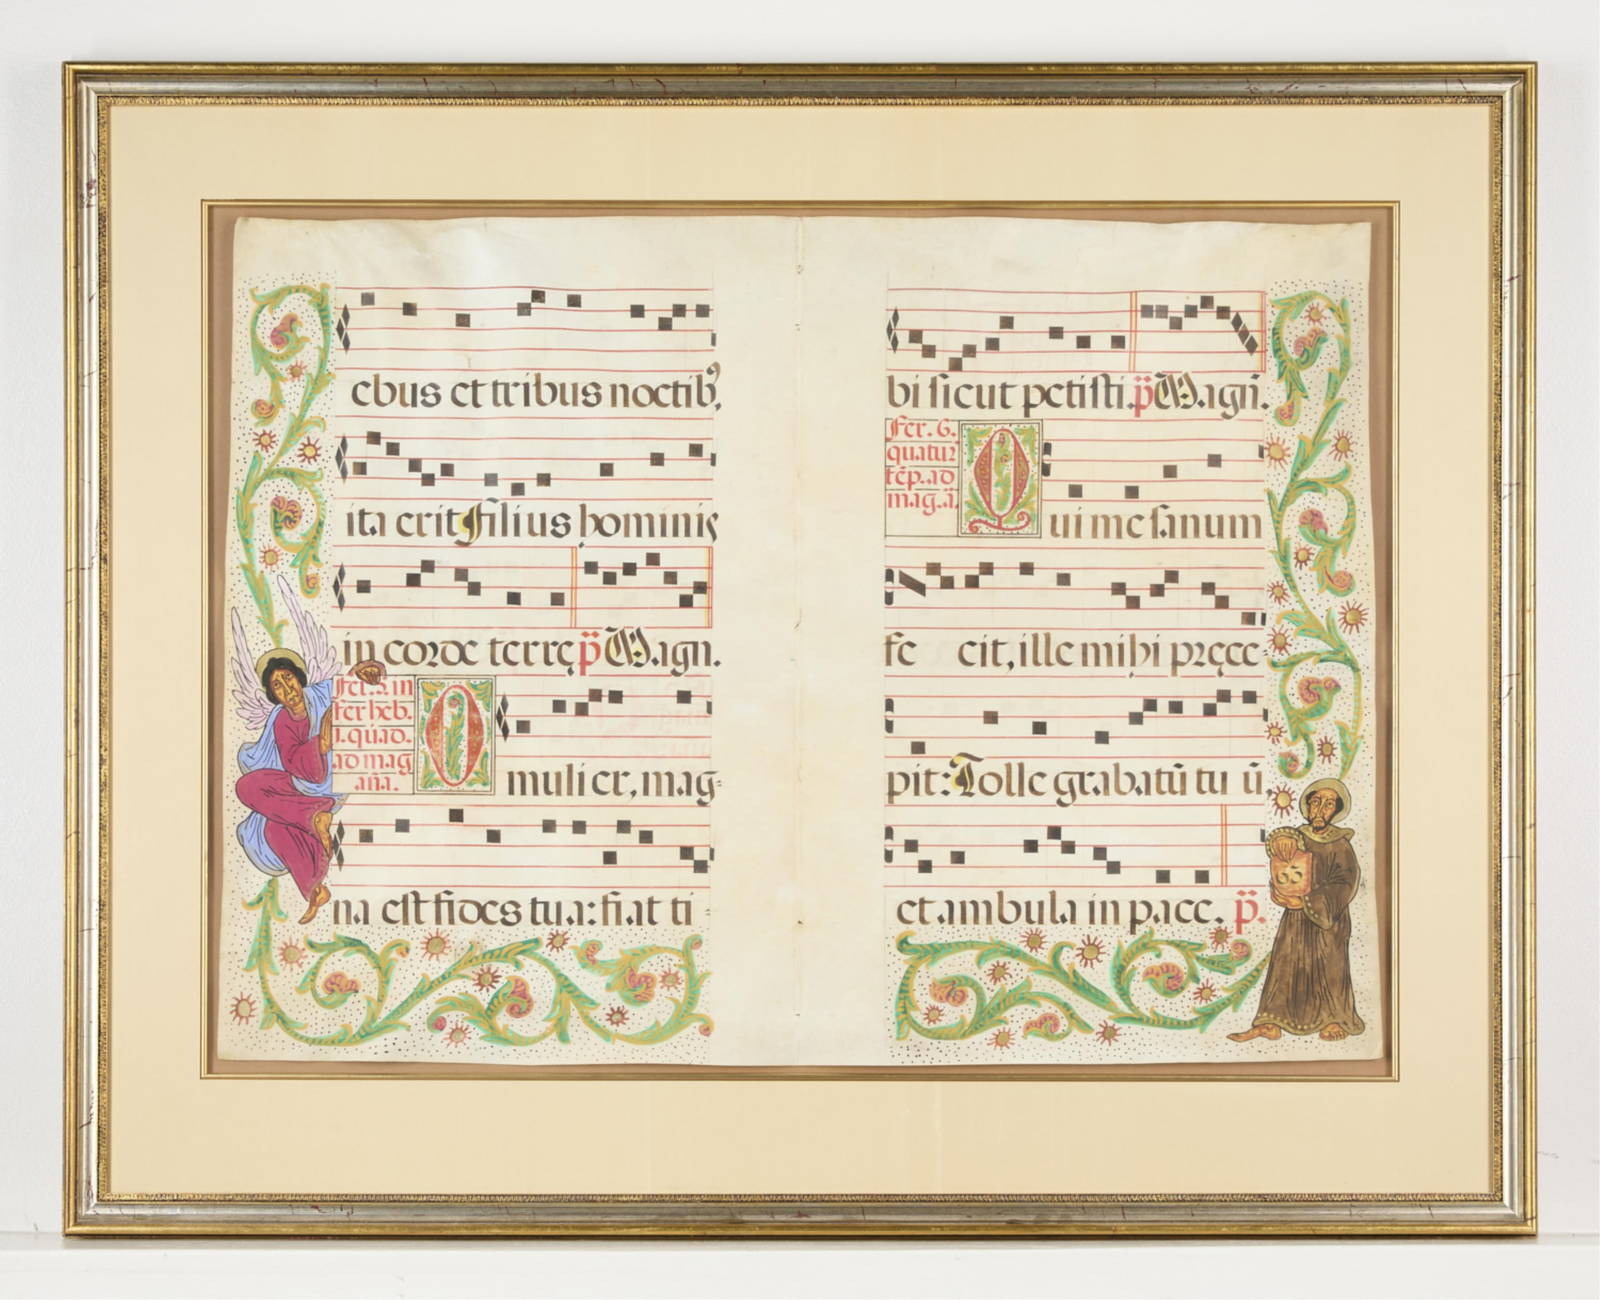 ebus et tribus noctibꝰ,
ita erit filius hominis
in corde terrę p̈ Magn.
Fer. 5. in
fer heb.
1. quad.
ad mag
aña.
O
mulier, mag-
na est fides tua: fiat ti-
bi sicut petisti. p̈ Magñ.
Fer. 6.
quatuꝛ
tẽp. ad
mag. ã.
Q
ui me sanum
fe cit, ille mihi pręce-
pit: Tolle grabatũ tu ũ,
et ambula in pace. p̈.
63